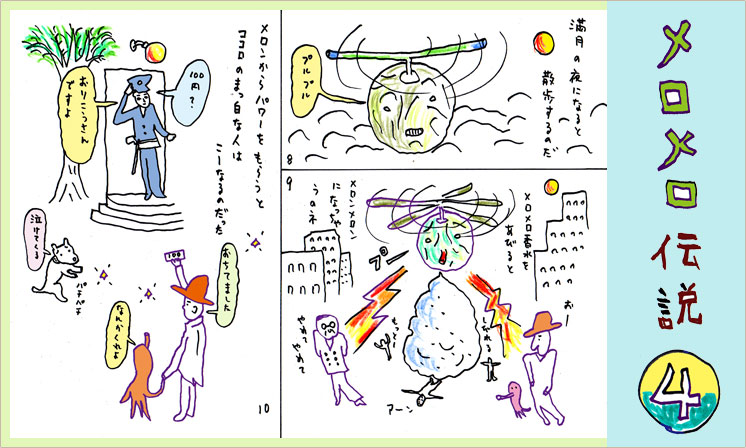 メロメロ伝説
4
満月の夜になると
散歩するのだ
プルプル
8
9
メロメロ香水を
あびると
メロンメロン
になっちゃ
うのネ
プー
おー
やめて
やめて
もっと
アーン
メロンからパワーをもらうと
ココロのまっ白な人は
こーなるのだった
100円?
おりこうさん
ですよ
泣けてくる
パチパチ
100
おちてました
なんかくれよ
10